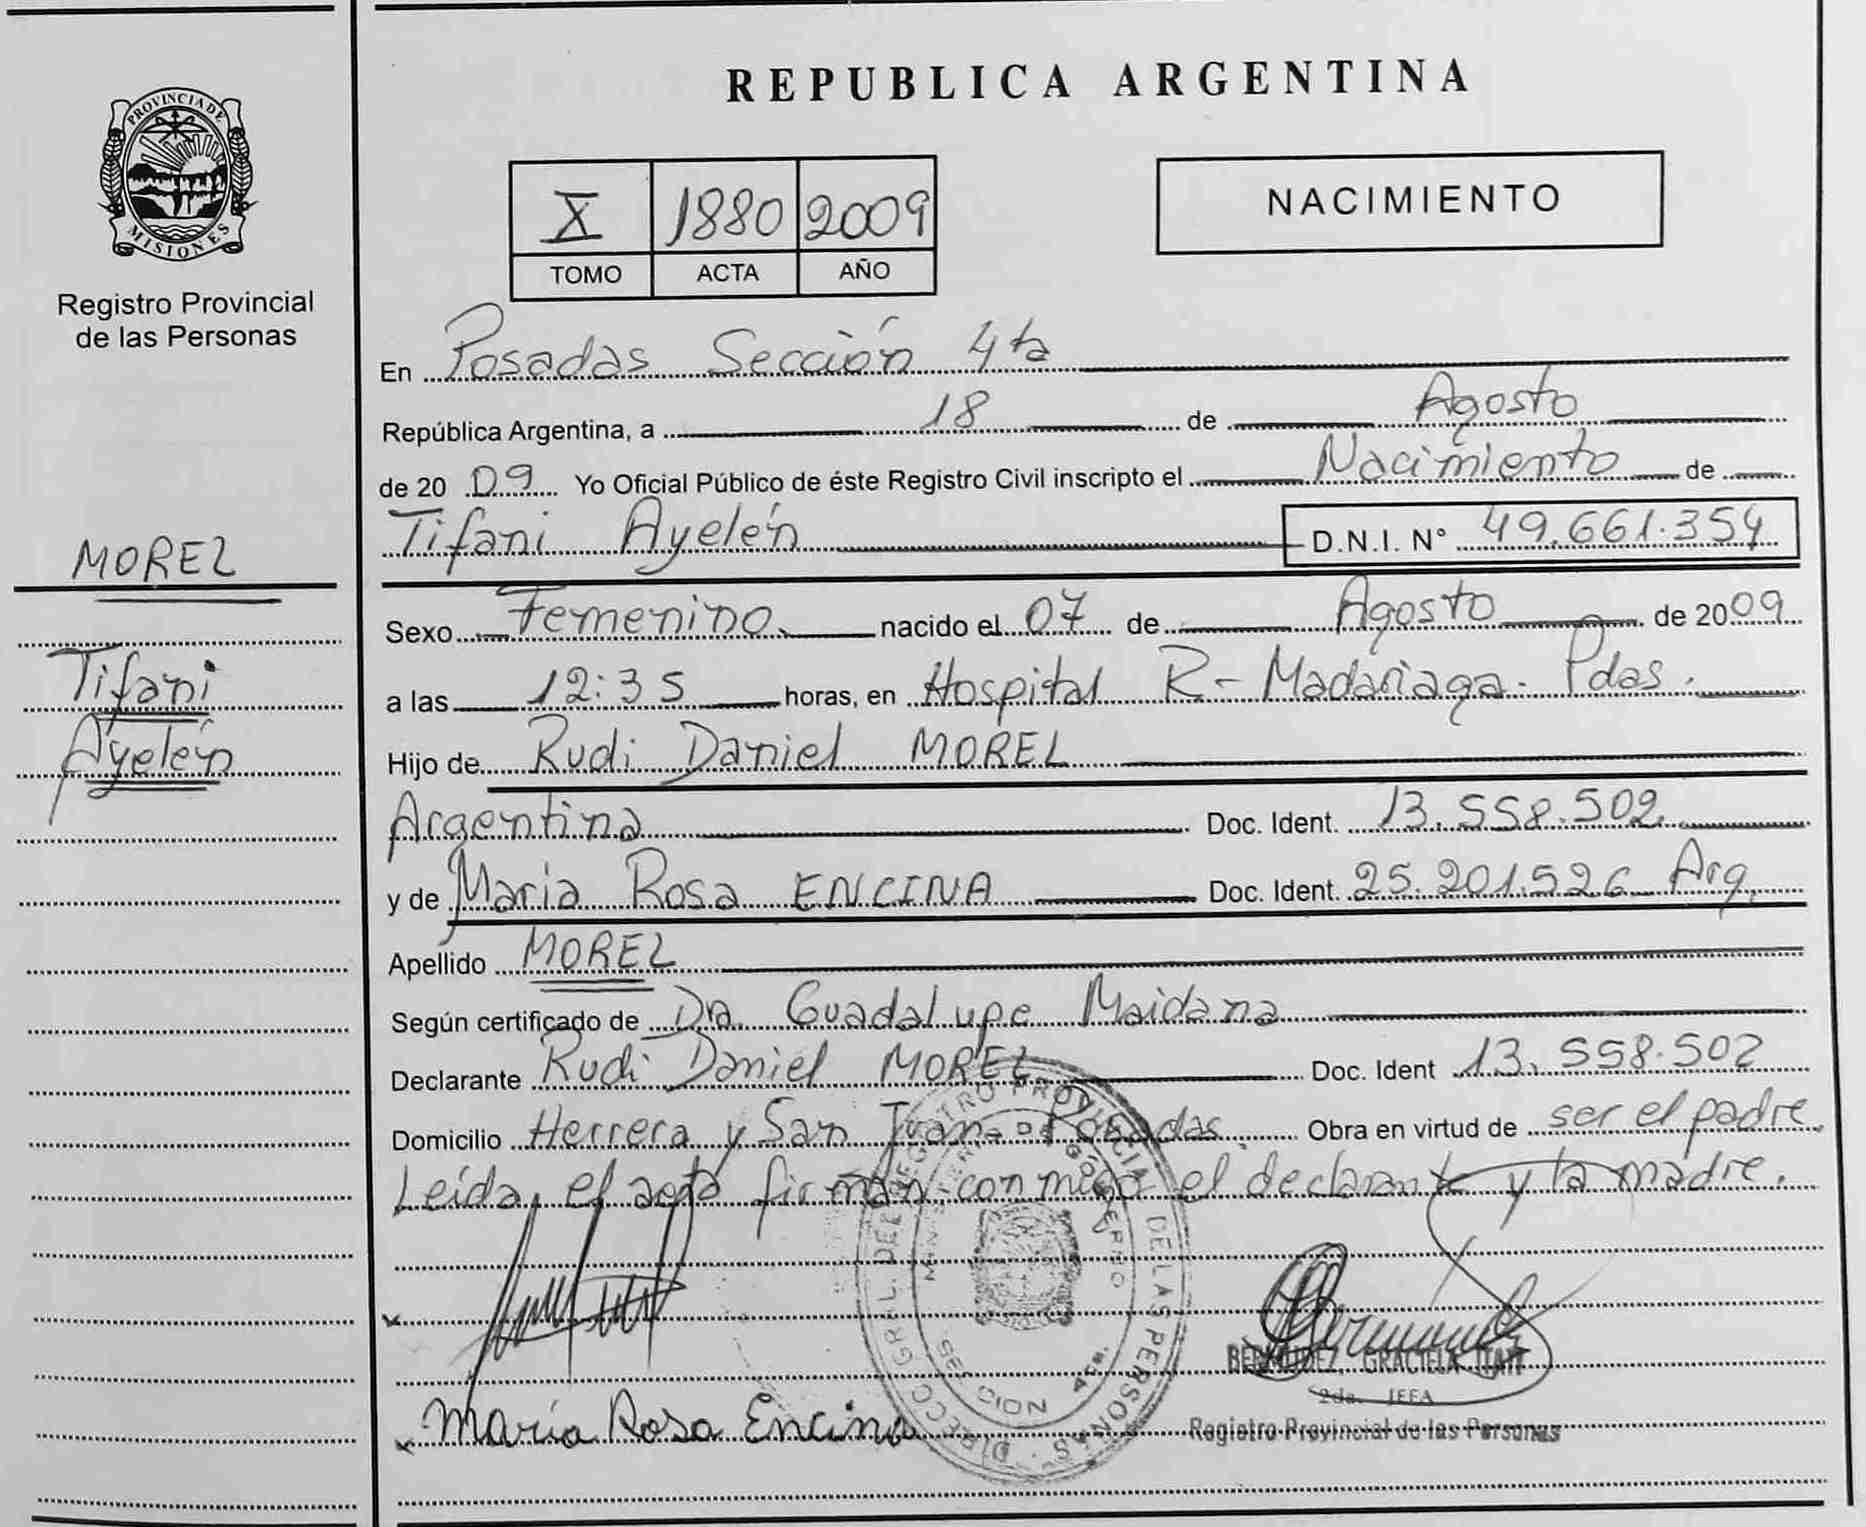 PROVINCIA DE
MISIONES
Registro Provincial
de las Personas
MOREL
Tifani
Ayelén
REPUBLICA ARGENTINA
X 1880 2009
TOMO ACTA AÑO
NACIMIENTO
En Posadas Sección 4ta
República Argentina, a 18 de Agosto
de 20 09 Yo Oficial Público de éste Registro Civil inscripto el Nacimiento de
Tifani Ayelén D.N.I. N° 49.661.354
Sexo Femenino nacido el 07 de Agosto de 2009
a las 12:35 horas, en Hospital R- Madariaga- Pdas.
Hijo de Rudi Daniel MOREL
Argentina Doc. Ident. 13.558.502
y de Maria Rosa ENCINA Doc. Ident. 25.201.526 Arg.
Apellido MOREL
Según certificado de Dra. Guadalupe Maidana
Declarante Rudi Daniel MOREL Doc. Ident 13.558.502
Domicilio Herrera y San Juan- Posadas. Obra en virtud de ser el padre.
Leída el acta firman conmigo el declarante y la madre.
DIRECC. GRAL. DEL REGISTRO PROVINCIAL DE LAS PERSONAS
BERMUDEZ, GRACIELA ITATI
2da. JEFA
María Rosa Encina
Registro Provincial de las Personas